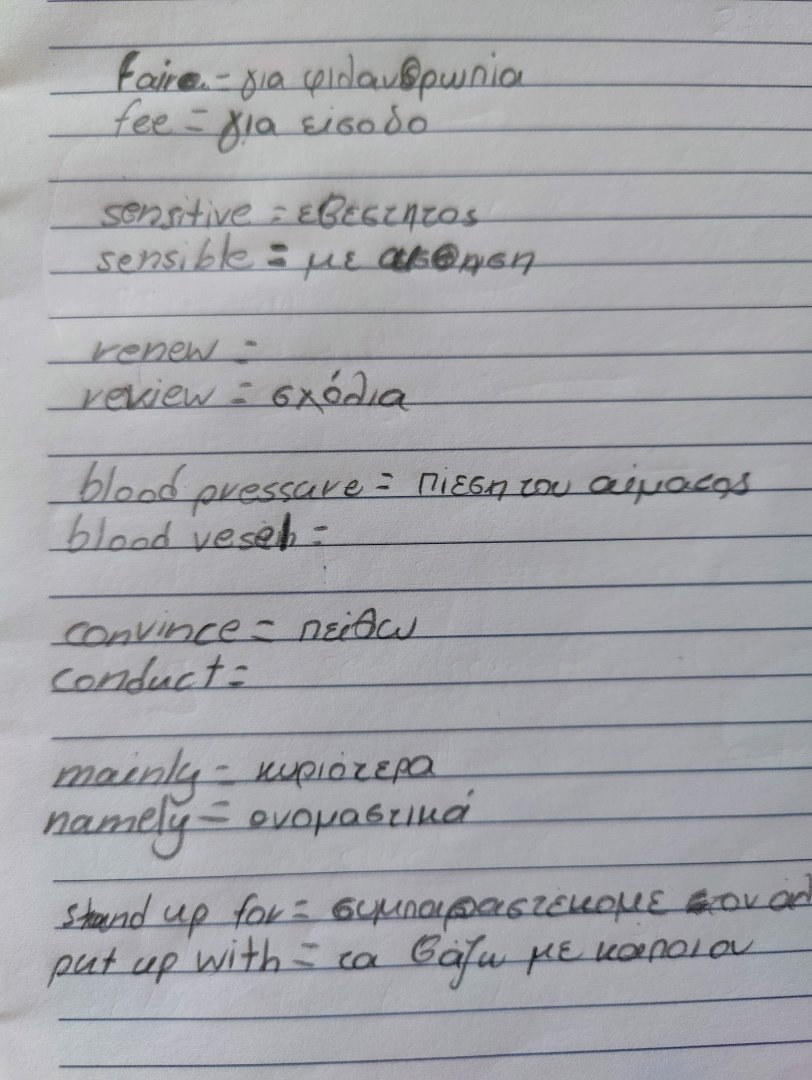 faire. - για φιλανθρωπία
fee = για εισοδο
sensitive = εβεστητος
sensible = με αισθηση
renew =
review = σχόλια
blood pressure = πιεση του αιματος
blood vesel =
convince = πείθω
conduct =
mainly = κυριότερα
namely = ονομαστικά
stand up for = συμπαραστεκομε στον
put up with = τα βάζω με καποιον